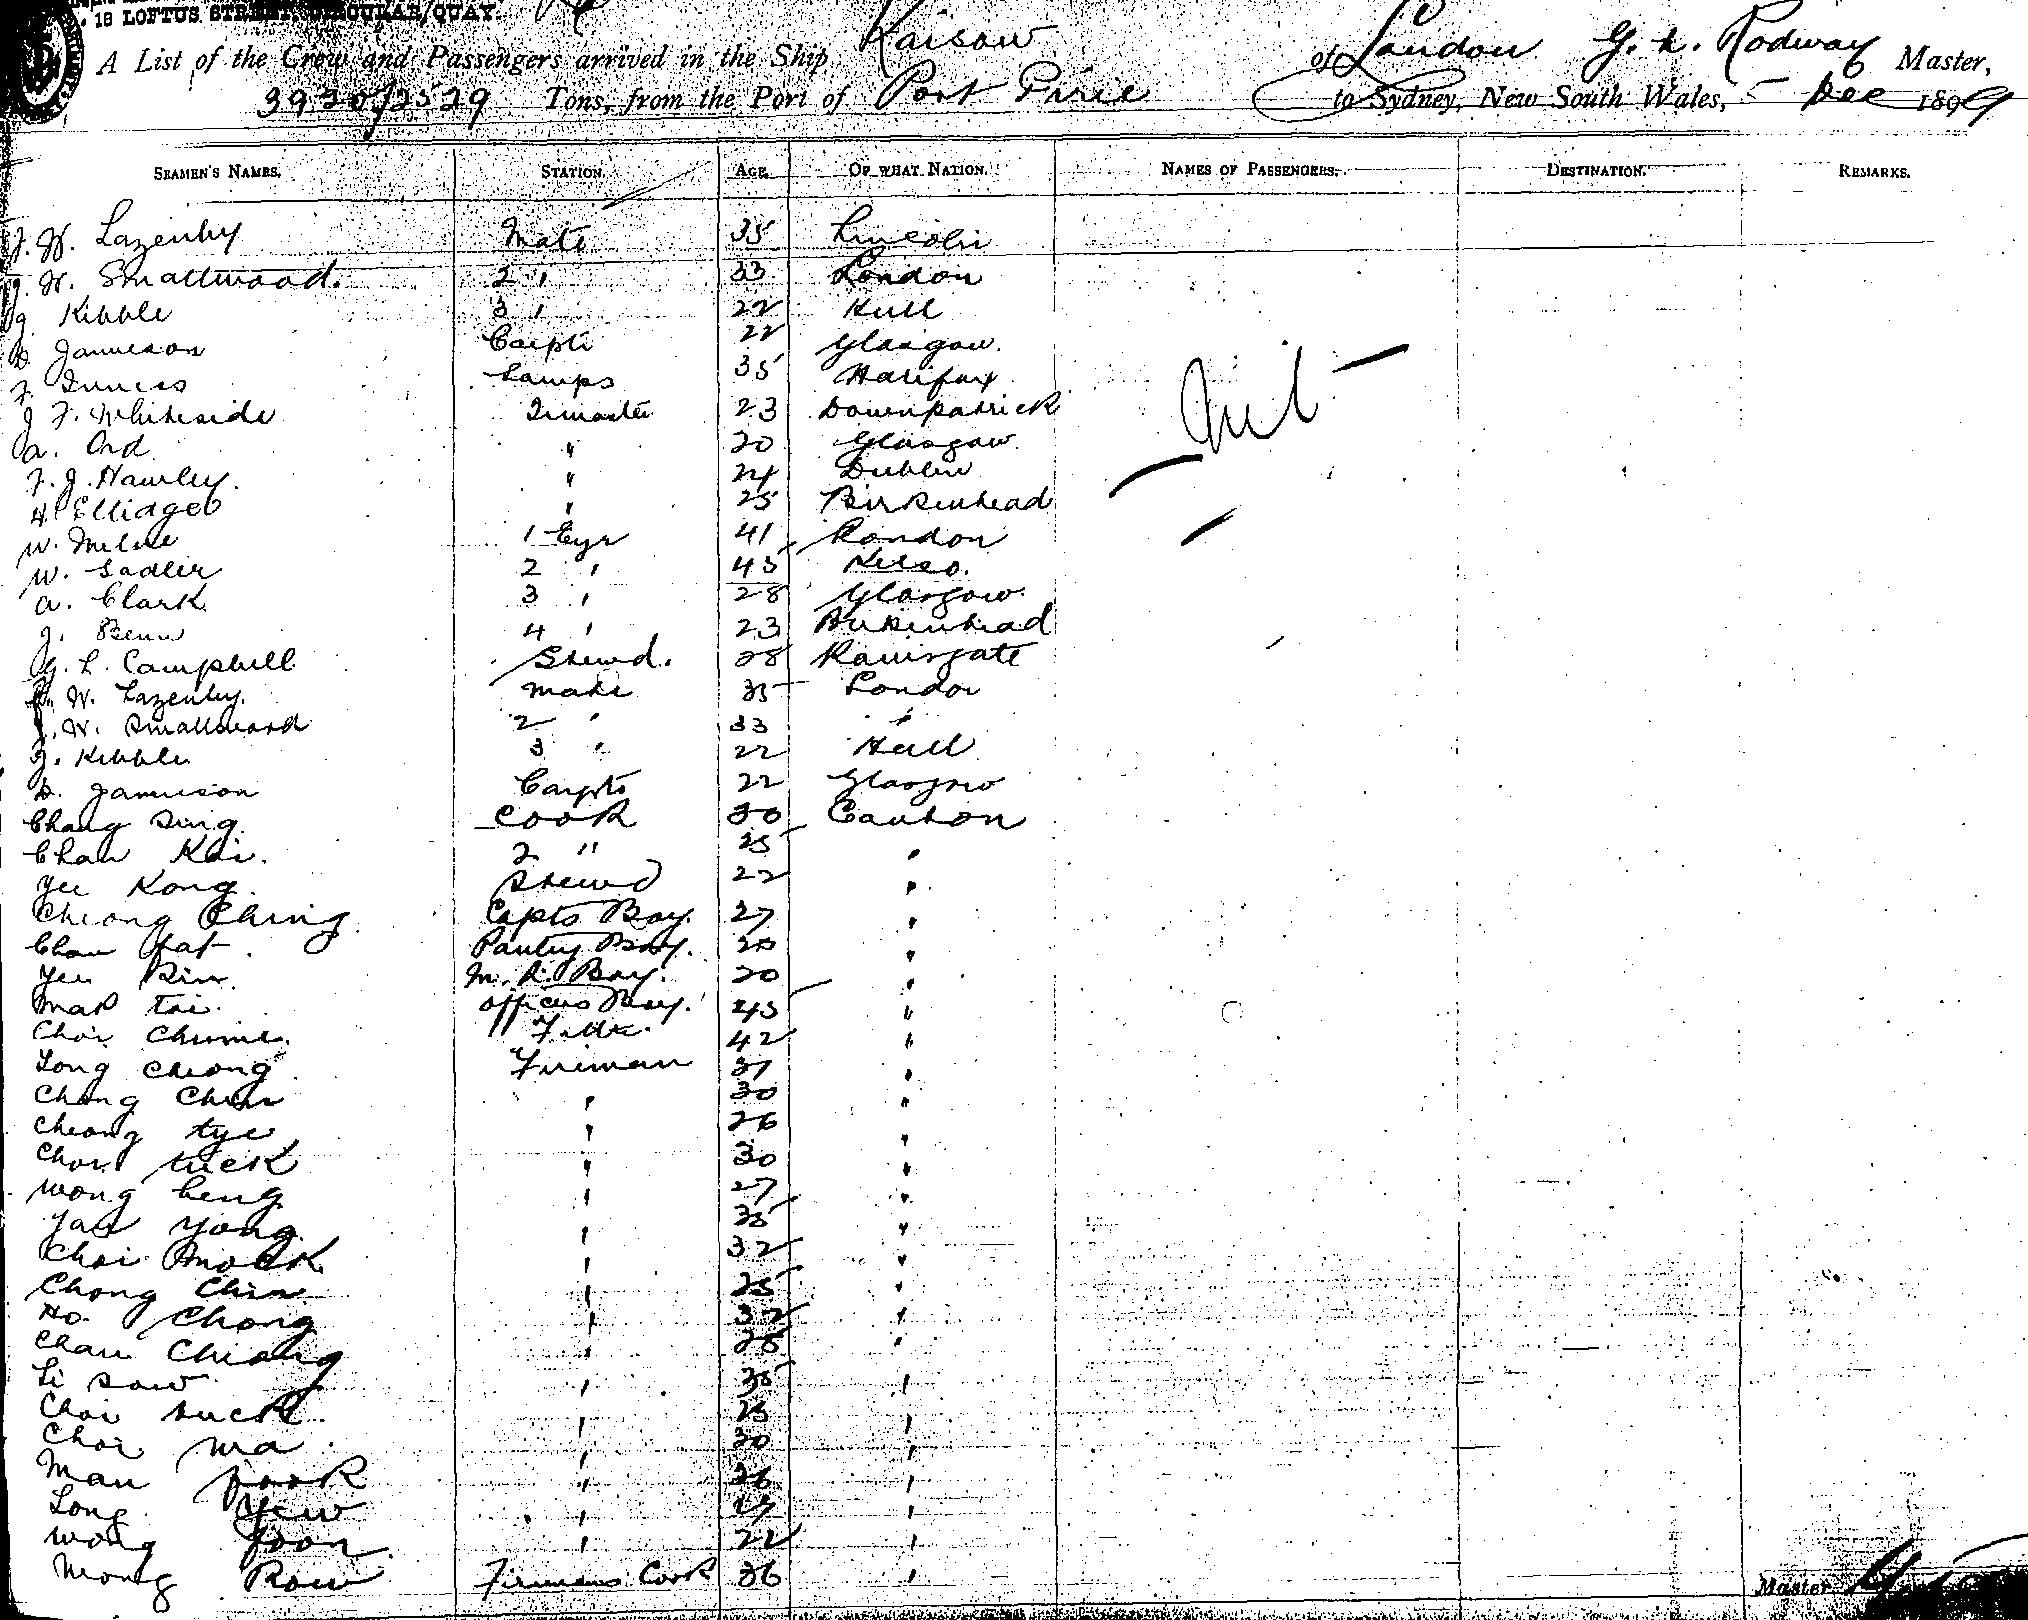 18 LOFTUS STREET, CIRCULAR QUAY.
A List of the Crew and Passengers arrived in the Ship Kaisow of London G. L. Rodway Master,
3930/2529 Tons, from the Port of Port Pirie to Sydney, New South Wales, 5 Dec 1899
SEAMEN'S NAMES. STATION. AGE. OF WHAT NATION. NAMES OF PASSENGERS. DESTINATION. REMARKS.
W. Lazenby Mate 35 Lincoln
J. W. Smallwood. 2 " 33 London
J Kibble 3 " 22 Hull
D Jamieson Carptr 22 Glasgow.
F. Inness Lamps 35 Halifax
J F. Whiteside Qrmaster 23 Downpatrick
A. Ord " 20 Glasgow.
F. J. Hawley. " 24 Dublin
H. Ellidge " 25 Birkenhead
W. Milne 1 Egr 41 London
W. Sadler 2 " 45 Kelso.
A. Clark 3 " 28 Glasgow
J. Benn 4 " 23 Birkenhead
G. L. Campbell Stewd. 28 Ramsgate
W. Lazenby. Mate 35 London
J. W. Smallwood 2 " 33 "
J. Kibble 3 " 22 Hull
D. Jamieson Carptr 22 Glasgow
Chang Sing Cook 30 Canton
Chan Kai. 2 " 25 "
Yee Kong. Stewd 22 "
Cheong Ching Capts Boy. 27 "
Chan fat Pantry Boy. 20 "
Yee Sin. M. R. Boy. 20 "
Mak tai. Officers Boy. 45 "
Choi 42 "
Long Cheong Fireman 37 "
Chong " 30 "
Cheong tye " 26 "
Choi tuck " 30 "
Wong Ceng " 27 "
Yan Yong. " 35 "
Choi Mock " 32 "
Chong Chin " 25 "
Ho Chong " 32 "
Chan Cheong " 28 "
Li Sow " 35 "
Choi Suck " 25 "
Choi Wa " 30 "
Man fook " 26 "
Long Yew " 27 "
Wong foon " 22 "
Wong Row Firemans Cook 36 "
Master